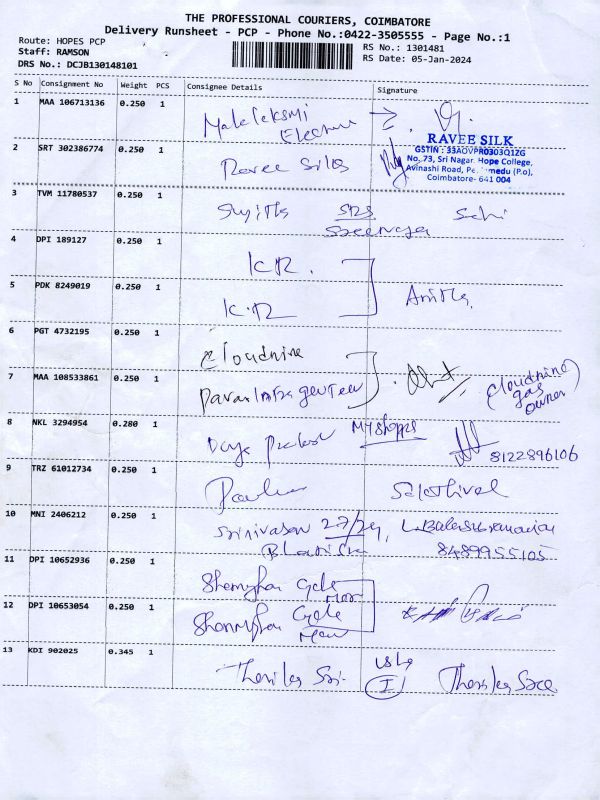 THE PROFESSIONAL COURIERS, COIMBATORE
Delivery Runsheet - PCP - Phone No.:0422-3505555 - Page No.:1
Route: HOPES PCP
Staff: RAMSON
DRS No.: DCJB130148101
RS No.: 1301481
RS Date: 05-Jan-2024
S No Consignment No Weight PCS Consignee Details Signature
1 MAA 106713136 0.250 1
2 SRT 302386774 0.250 1 Ravee Silks
RAVEE SILK
GSTIN : 33AOVPR0303Q1ZG
No. 73, Sri Nagar, Hope College,
Avinashi Road, (P.o),
Coimbatore- 641 004
3 TVM 11780537 0.250 1 Sujitha SRS
Sreenagar
4 DPI 189127 0.250 1 K.R.
5 PDK 8249019 0.250 1 K.R Anitha
6 PGT 4732195 0.250 1 Cloudnine
7 MAA 108533861 0.250 1
(Cloudnine
gas
owner)
8 NKL 3294954 0.280 1 Myshopps
8122896106
9 TRZ 61012734 0.250 1
10 MNI 2406212 0.250 1 Srinivasan 27/24, L. Balasubramaniam
8489955105
11 DPI 10652936 0.250 1 Cycle
Mart
12 DPI 10653054 0.250 1 Cycle
Mart
13 KDI 902025 0.345 1
I